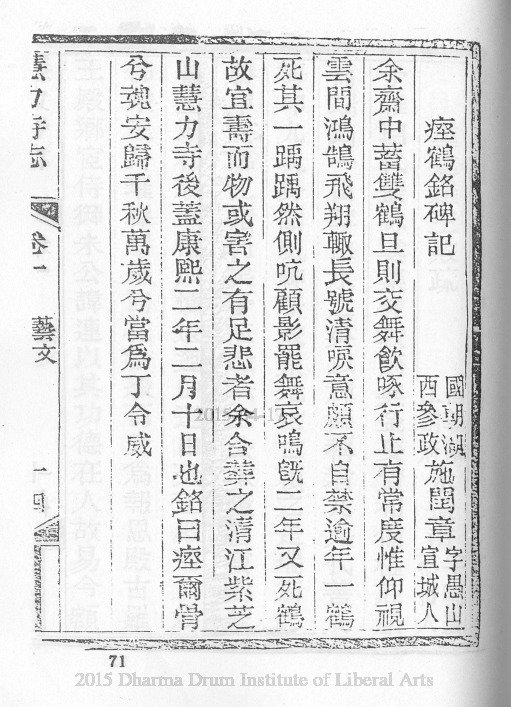 瘞鶴銘碑記
國朝湖西參政施閏章字愚山宣城人
余齋中蓄雙鶴旦則交舞飲啄行止有常度惟仰視
雲間鴻鵠飛翔輒長號清唳意頗不自禁逾年一鶴
死其一踽踽然側吭顧影罷舞哀鳴旣二年又死鶴
故宜壽而物或害之有足悲者余合葬之清江紫芝
山慧力寺後蓋康熙二年二月十日也銘曰瘞爾骨
兮魂安歸千秋萬歲兮當爲丁令威
慧力寺志
卷一
藝文
一四
71
2015 Dharma Drum Institute of Liberal Arts